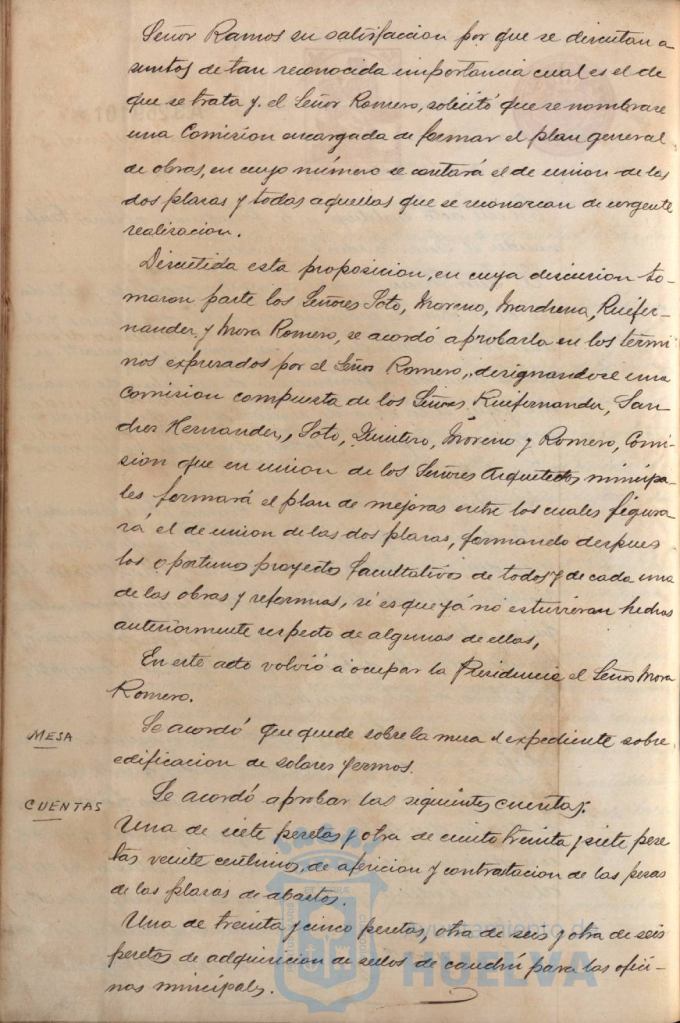 Señor Ramos su satisfaccion por que se discutan a
suntos de tan reconocida importancia cual es el de
que se trata y el Señor Romero, solicitó que se nombrase
una Comision encargada de formar el plan general
de obras, en cuyo número se contará el de union de las
dos plazas y todas aquellas que se reconozcan de urgente
realizacion.
Discutida esta proposicion, en cuya discusion to-
maron parte los Señores Soto, Moreno, Marchena, Ruifer-
nandez y Mora Romero, se acordó aprobarla en los térmi
nos expresados por el Señor Romero, designandose una
Comision compuesta de los Señores Ruifernandez, San
chez Hernandez, Soto, Quintero, Moreno y Romero, Comi-
sion que en union de los Señores Arquitectos municipa-
les formará el plan de mejoras entre los cuales figura-
rá el de union de las dos plazas, formando despues
los oportuno proyecto facultativo de todos y de cada una
de las obras y reformas, si es que yá no estuvieran hechos
anteriormente respecto de algunas de ellas,
En este acto volvió á ocupar la Presidencia el Señor Mora
Romero.
MESA
Se acordó que quede sobre la mesa el expediente sobre
edificacion de solares yermos.
CUENTAS
Se acordó aprobar las siguientes cuentas:
Una de siete pesetas y otra de ciento treinta y siete pese
tas veinte centimos, de afericion y contrastacion de las pesas
de las plazas de abastos.
Una de treinta y cinco pesetas, otra de seis y otra de seis
pesetas de adquisicion de sellos de cauchú para las ofici-
nas municipales.
HUELVA